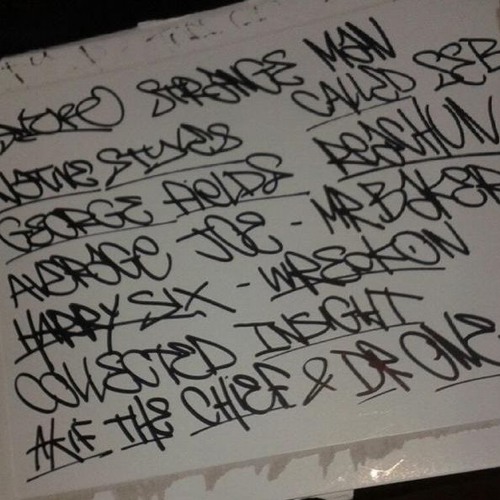 STRANGE MAN
CALLED SEB
NATIVE STYLES
GEORGE FIELDS REACHUN
AVERAGE JOE - MR BAKER
HARRY SIX - WRECKON
COLLECTED INSIGHT
AKIF THE CHIEF & DR ONE